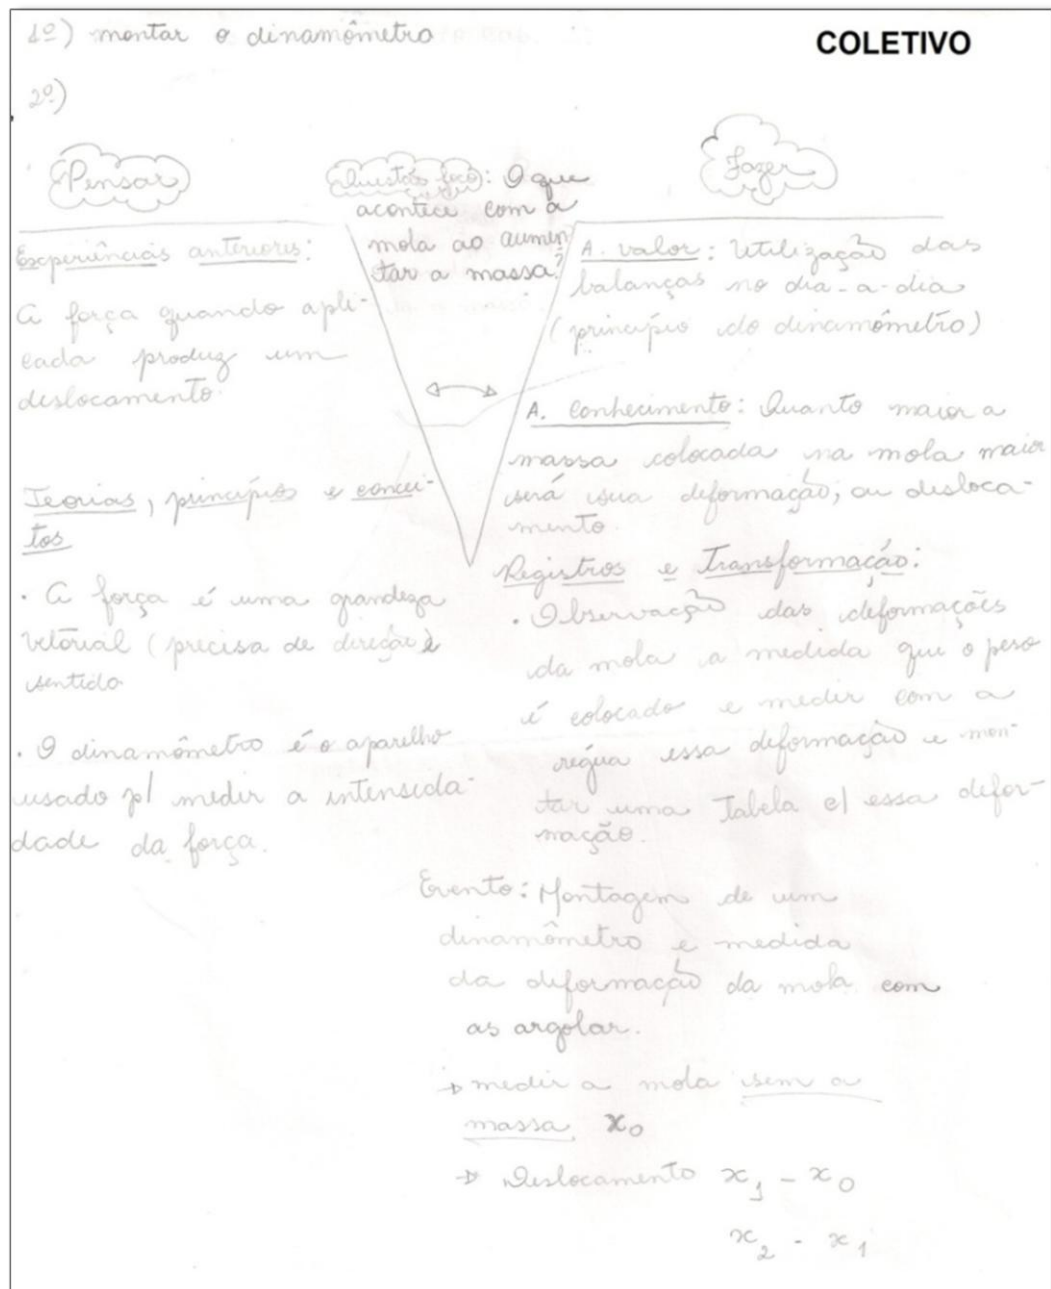 1º) montar o dinamômetro
COLETIVO
2º)
Pensar
Experiências anteriores:
A força quando apli-
cada produz um
deslocamento.
Teorias, princípios e concei-
tos
. A força é uma grandeza
vetorial (precisa de direção e
sentido
. O dinamômetro é o aparelho
usado p/ medir a intensida-
dade da força.
Questão foco: O que
acontece com a
mola ao aumen
tar a massa?
Fazer
A. valor: Utilização das
balanças no dia-a-dia
(princípio do dinamômetro)
A. conhecimento: Quanto maior a
massa colocada na mola maior
será sua deformação, ou desloca-
mento.
Registros e Transformação:
. Observação das deformações
da mola a medida que o peso
é colocado e medir com a
régua essa deformação e mon-
tar uma Tabela c/ essa defor-
mação.
Evento: Montagem de um
dinamômetro e medida
da deformação da mola com
as argolar.
→ medir a mola sem a
massa x₀
→ Deslocamento x₁ - x₀
x₂ - x₁